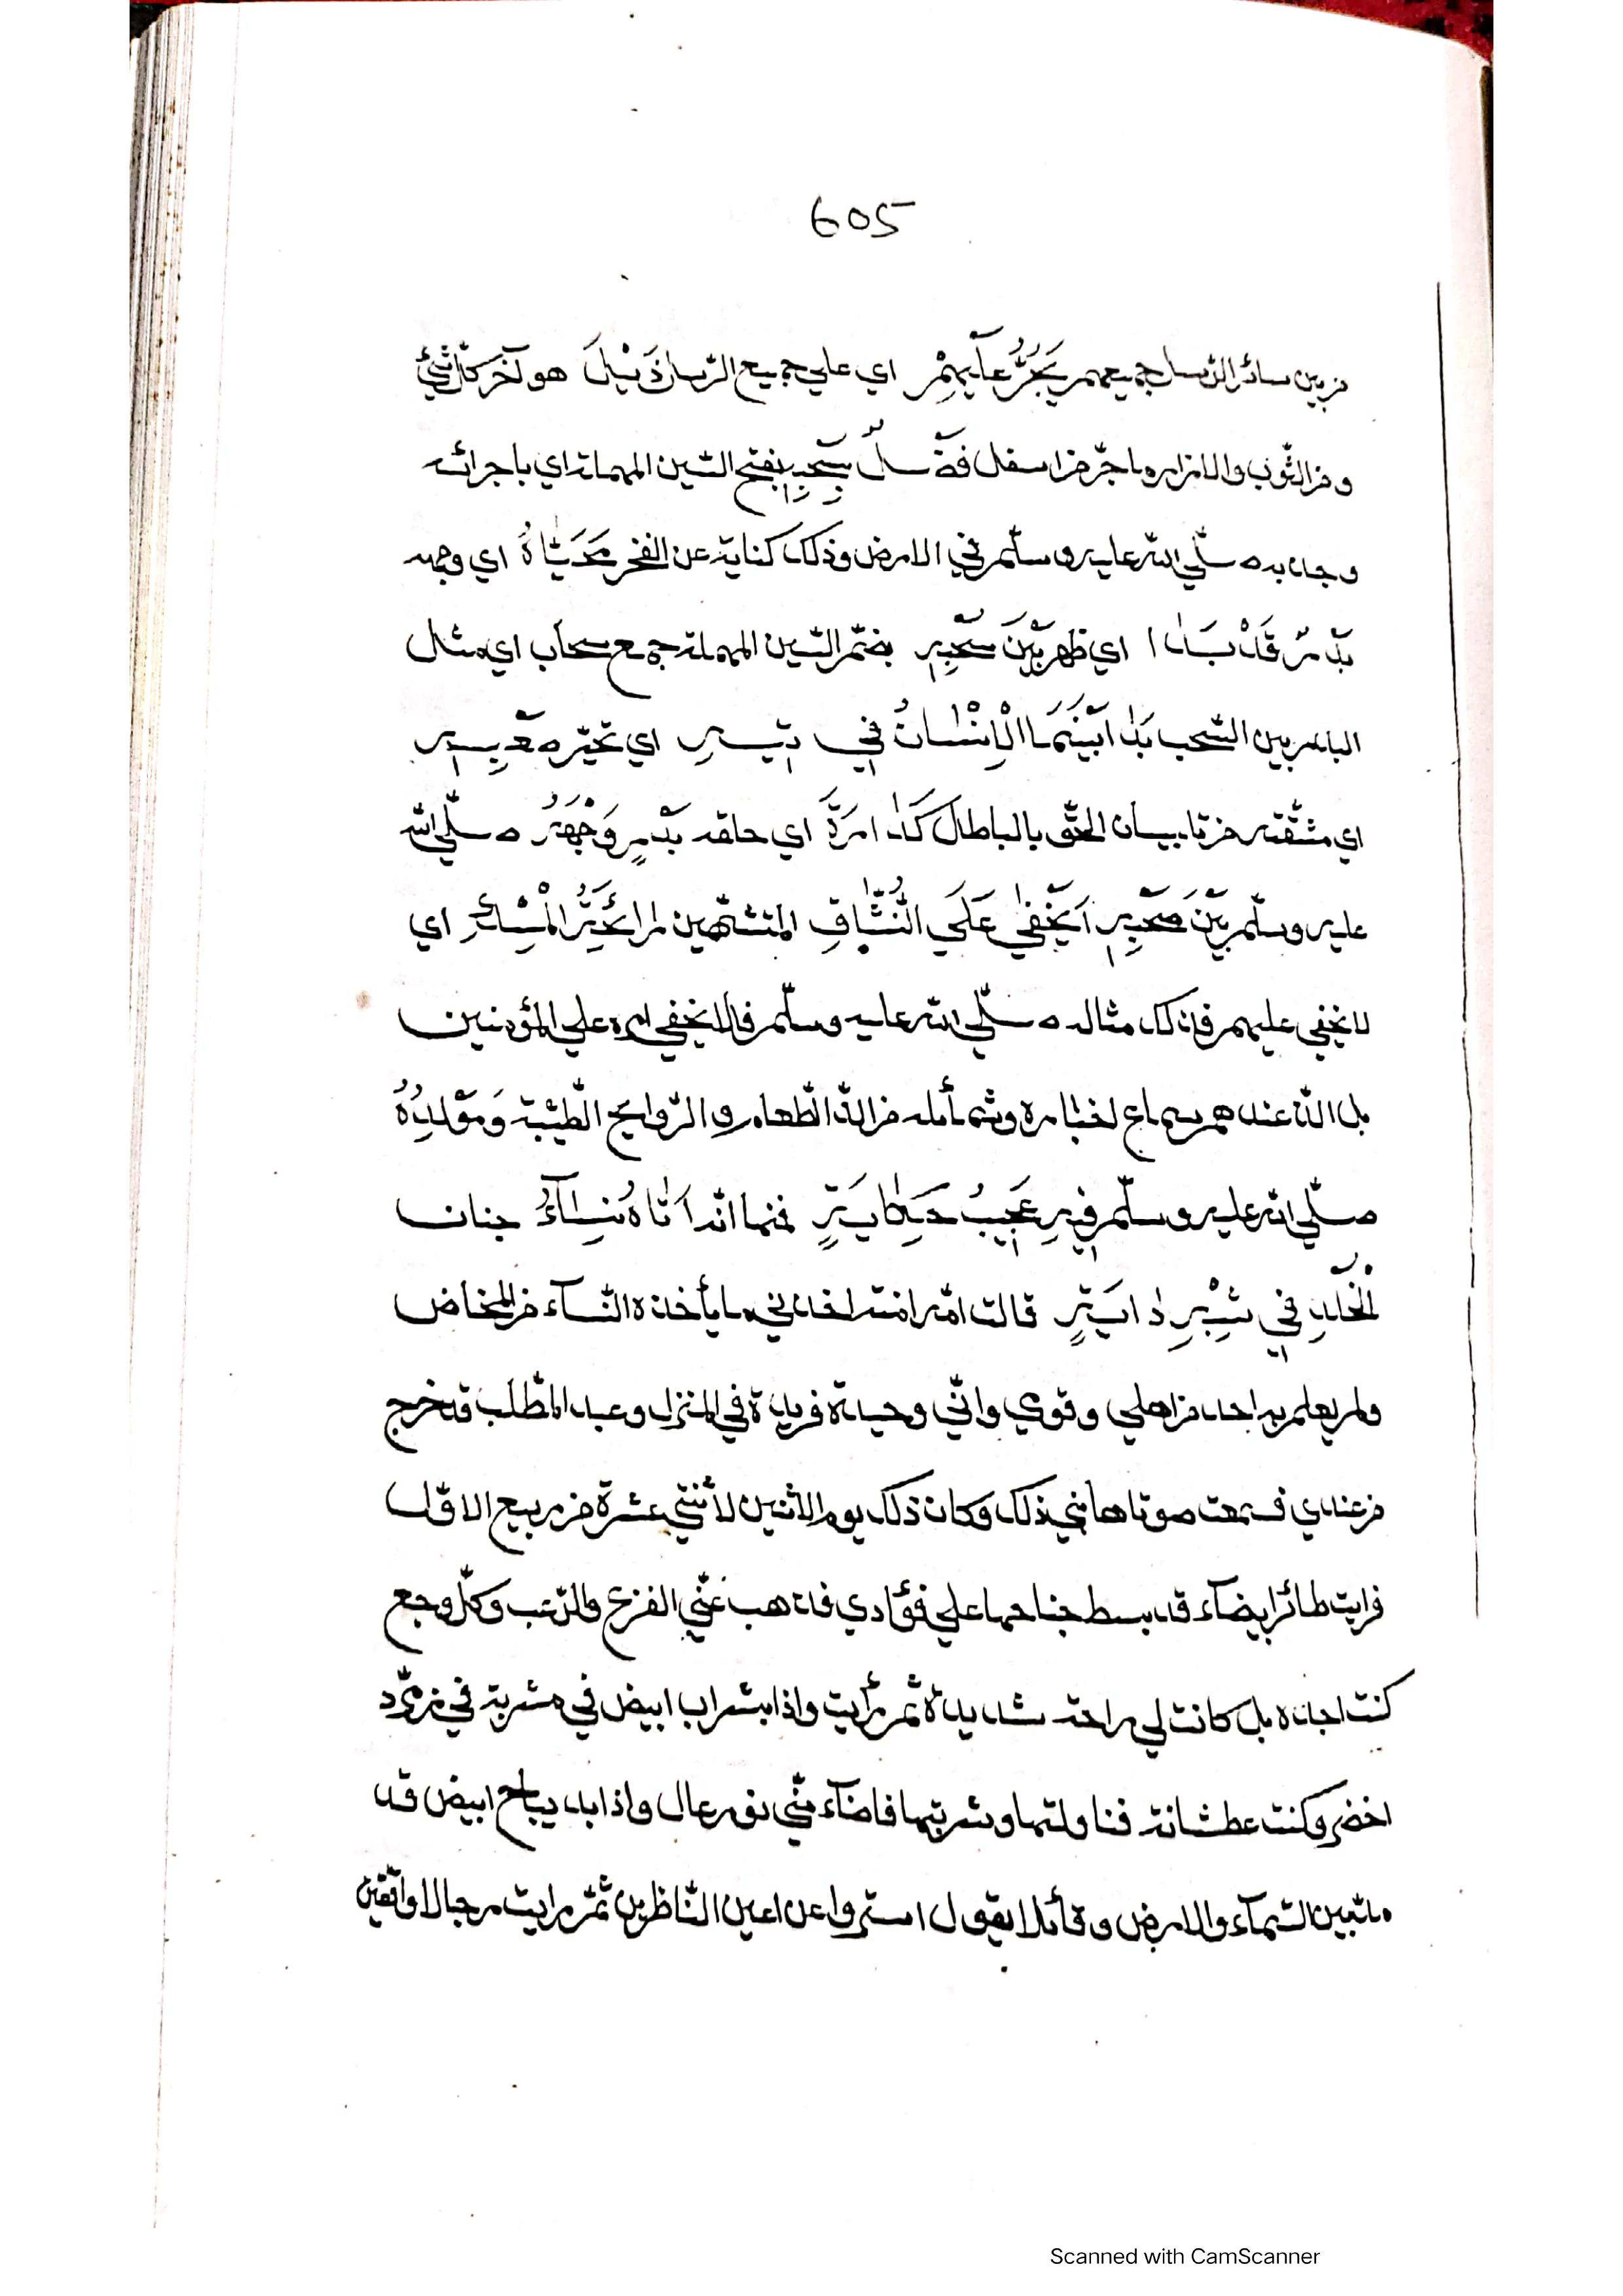 605
من بين سائر الرّسل جميعهم يَجُرُّ عَلَيْهِمْ اي علي جميع الرّسل ذَيْلَ هو آخر كلّ شيئ
ومن الثّوب والازار ما جرّ من اسفل فضل سَحْبِهِ بفتح السّين المهملة اي باجرائه
وجذبه صلّي الله عليه وسلّم في الارض وذلك كناية عن الفخر مُحَيَّاهُ اي وجهه
بَدْرٌ قَدْ بَدَا اي ظهر بَيْنَ سُحْبِهِ بضمّ السّين المهملة جمع سحاب اي مثل
البدر بين السّحب بَدَا بَيْنَمَا الْاِنْسَانُ فِي تِيْهِ اي تحيّره
اي مشقّته من تلبيسان الحقّ بالباطل كَدَارَةِ اي حلقة بَدْرٍ وَجْهُهُ صلّي الله
عليه وسلّم بَيْنَ صَحْبِهِ اَيَخْفَى عَلَي النُّشَّاقِ المتشمّمين رَائِحَةُ الْمِسْكِ اي
لا يخفي عليهم فذلك مثاله صلّي الله عليه وسلّم فلا يخفي امره علي المؤمنين
بل الذّ عندهم سماع اخباره وشمائله من الذّ الطّعام والرّوايح الطّيّبة وَمَوْلِدُهُ
صلّي الله عليه وسلّم فِيهِ عَجِيبُ حِكَايَةٍ فمنها انّه اَتَاهُ نِسَآءُ جنان
الْخُلْدِ فِي قالت امّه امنة اخذني ما يأخذه النّسآء من المخاض
ولم يعلم به احد من اهلي وقومي وانّي وحيدة فريدة في المنزل وعبد المطّلب قد خرج
من عندي فسمعت صوتا هابني ذلك وكان ذلك يوم الاثنين لاثنتي عشرة من ربيع الاوّل
فرايت طائرا بيضآء قد بسط جناحها علي فؤادي فذهب عنّي الفزع والرّعب وكلّ وجع
كنت اجده بل كانت لي راحة شديدة ثم رأيت واذا بشراب ابيض في مشربة في زمرّد
اخضر وكنت عطشانة فناولتها وشربتها فاضآء منّي نور عال واذا بديباج ابيض قد
مدّ بين السّمآء والارض وقائلا يقول استروا عن اعين النّاظرين ثمّ رايت رجالا واقفين
Scanned with CamScanner